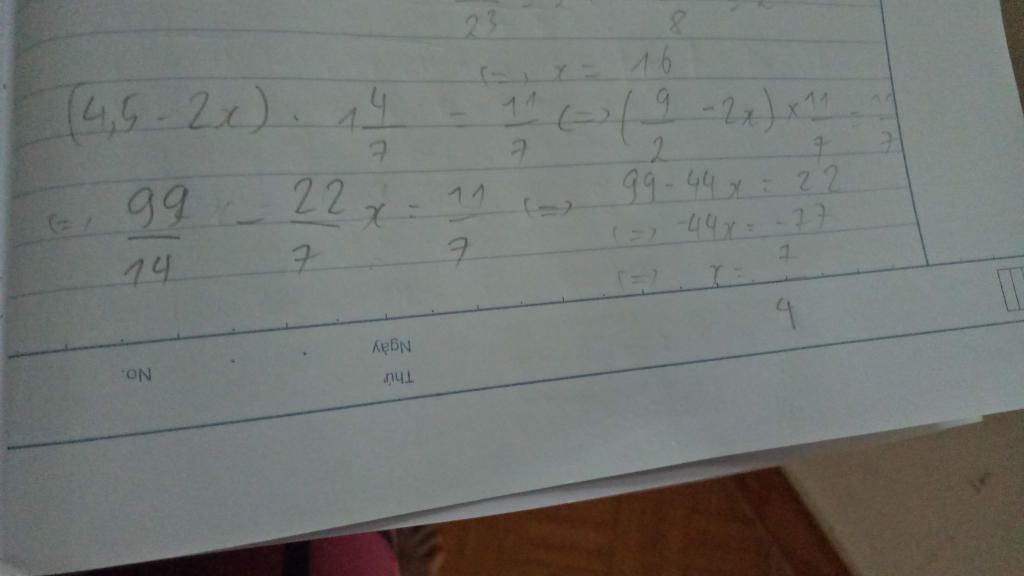 23 8
(=) x = 16
(4,5 - 2x) . 1 4/7 = 11/7 (=) (9/2 - 2x) x 11/7 = 11/7
(=) 99/14 - 22/7 x = 11/7 (=) 99 - 44x = 22
(=) -44x = -77
(=) x = 7/4
No.
Ngày
Thứ